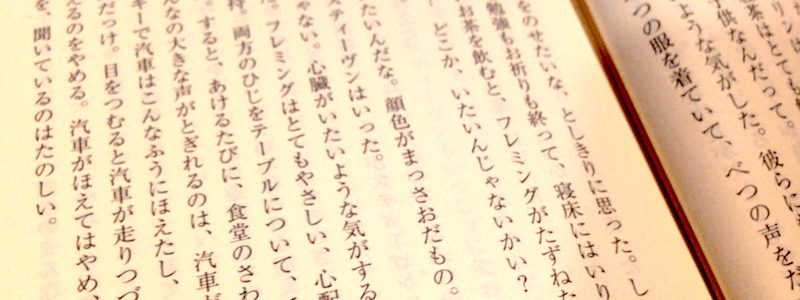 リンは
茶はとても
子供なんだって。
ような気がした。彼らに
つの服を着ていて、べつの声をだ
をのせたいな、としきりに思った。し
勉強もお祈りも終って、寝床にはいり
お茶を飲むと、フレミングがたずねた
どこか、いたいんじゃないかい?
たいんだな。顔色がまっさおだもの。
スティーヴンはいった。
ゃない。心臓がいたいような気がする
フレミングはとてもやさしい、心配
持、両方のひじをテーブルについて、
すると、あけるたびに、食堂のさわ
んなの大きな声がとぎれるのは、汽車が
キーで汽車はこんなふうにほえたし、
だけ。目をつむると汽車が走りつづ
えるのをやめる。汽車がほえてはやめ、
を、聞いているのはたのしい。